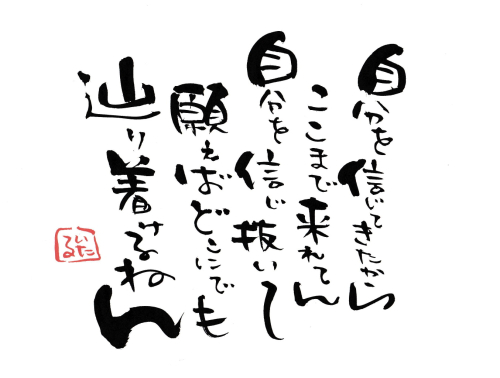 自分を信じてきたから
ここまで来れてん
自分を信じ抜いて
願えばどこにでも
辿り着けるねん